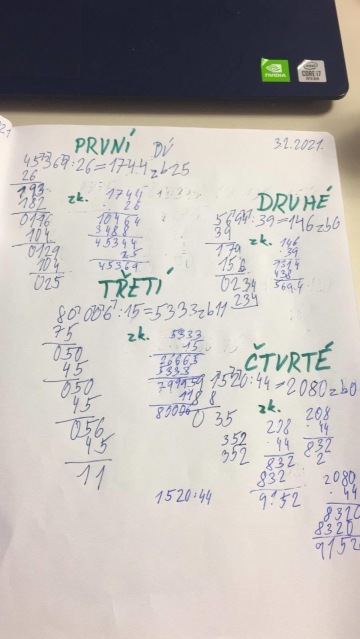 NVIDIA
CORE i7
PRVNÍ DÚ
3.2.2021
45369:26=1744 zb25
26
193
182
0116
104
0129
104
025
zk.
1744
. 26
10464
3488
45344
25
45369
DRUHÉ
5694:39=146 zb0
39
179
156
0234
234
zk.
146
39
1314
438
5694
TŘETÍ
80006:15=5333 zb11
75
050
45
050
45
056
45
11
zk.
5333
. 15
26665
5333
ČTVRTÉ
1520:44=2080 zb0
352
352
zk.
208
. 44
832
832
9152
208
. 44
832
2
2080
. 44
8320
8320
9152
1520:44